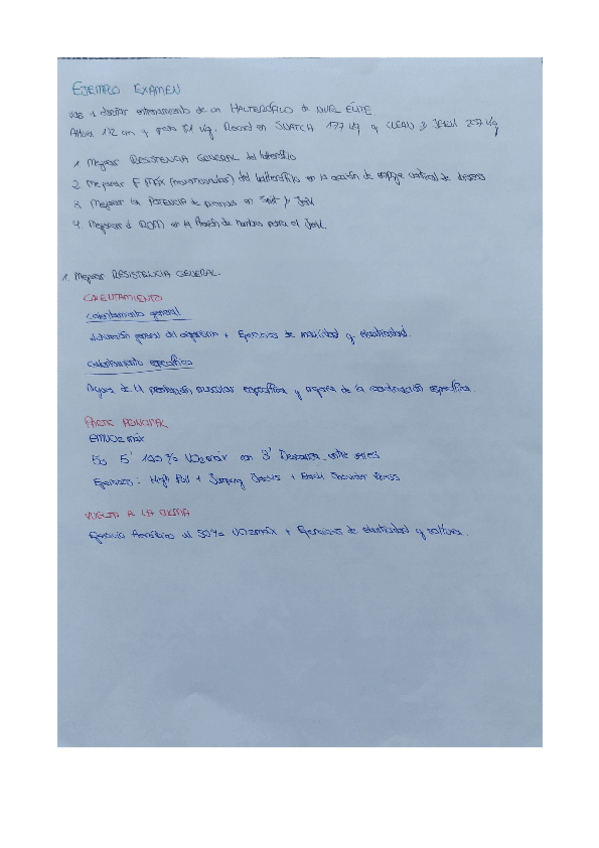 EJEMPLO EXAMEN
diseñar entrenamiento de un HALTERÓFILO de NIVEL ÉLITE
172 cm y 81 kg. Record en SNATCH 177 kg y CLEAN & JERK 207 kg
1. Mejorar RESISTENCIA GENERAL del halterófilo
2. Mejorar F MÁX del halterófilo en la acción de empuje vertical de
3. Mejorar la POTENCIA de piernas en y Jerk
4. Mejorar el ROM en la flexión de hombro para el Jerk.
1. Mejorar RESISTENCIA GENERAL.
CALENTAMIENTO
Calentamiento general
Activación general del organismo + Ejercicios de movilidad y elasticidad.
Calentamiento específico
Mejora de la activación muscular específica y mejora de la coordinación específica.
PARTE PRINCIPAL
5x 5' 100% VO2máx con 3' Descanso entre series
Ejercicios: High Pull + Jumping Jacks + Shoulder Press
VUELTA A LA CALMA
Ejercicio Aeróbico al 50% VO2máx + Ejercicios de elasticidad y soltura.